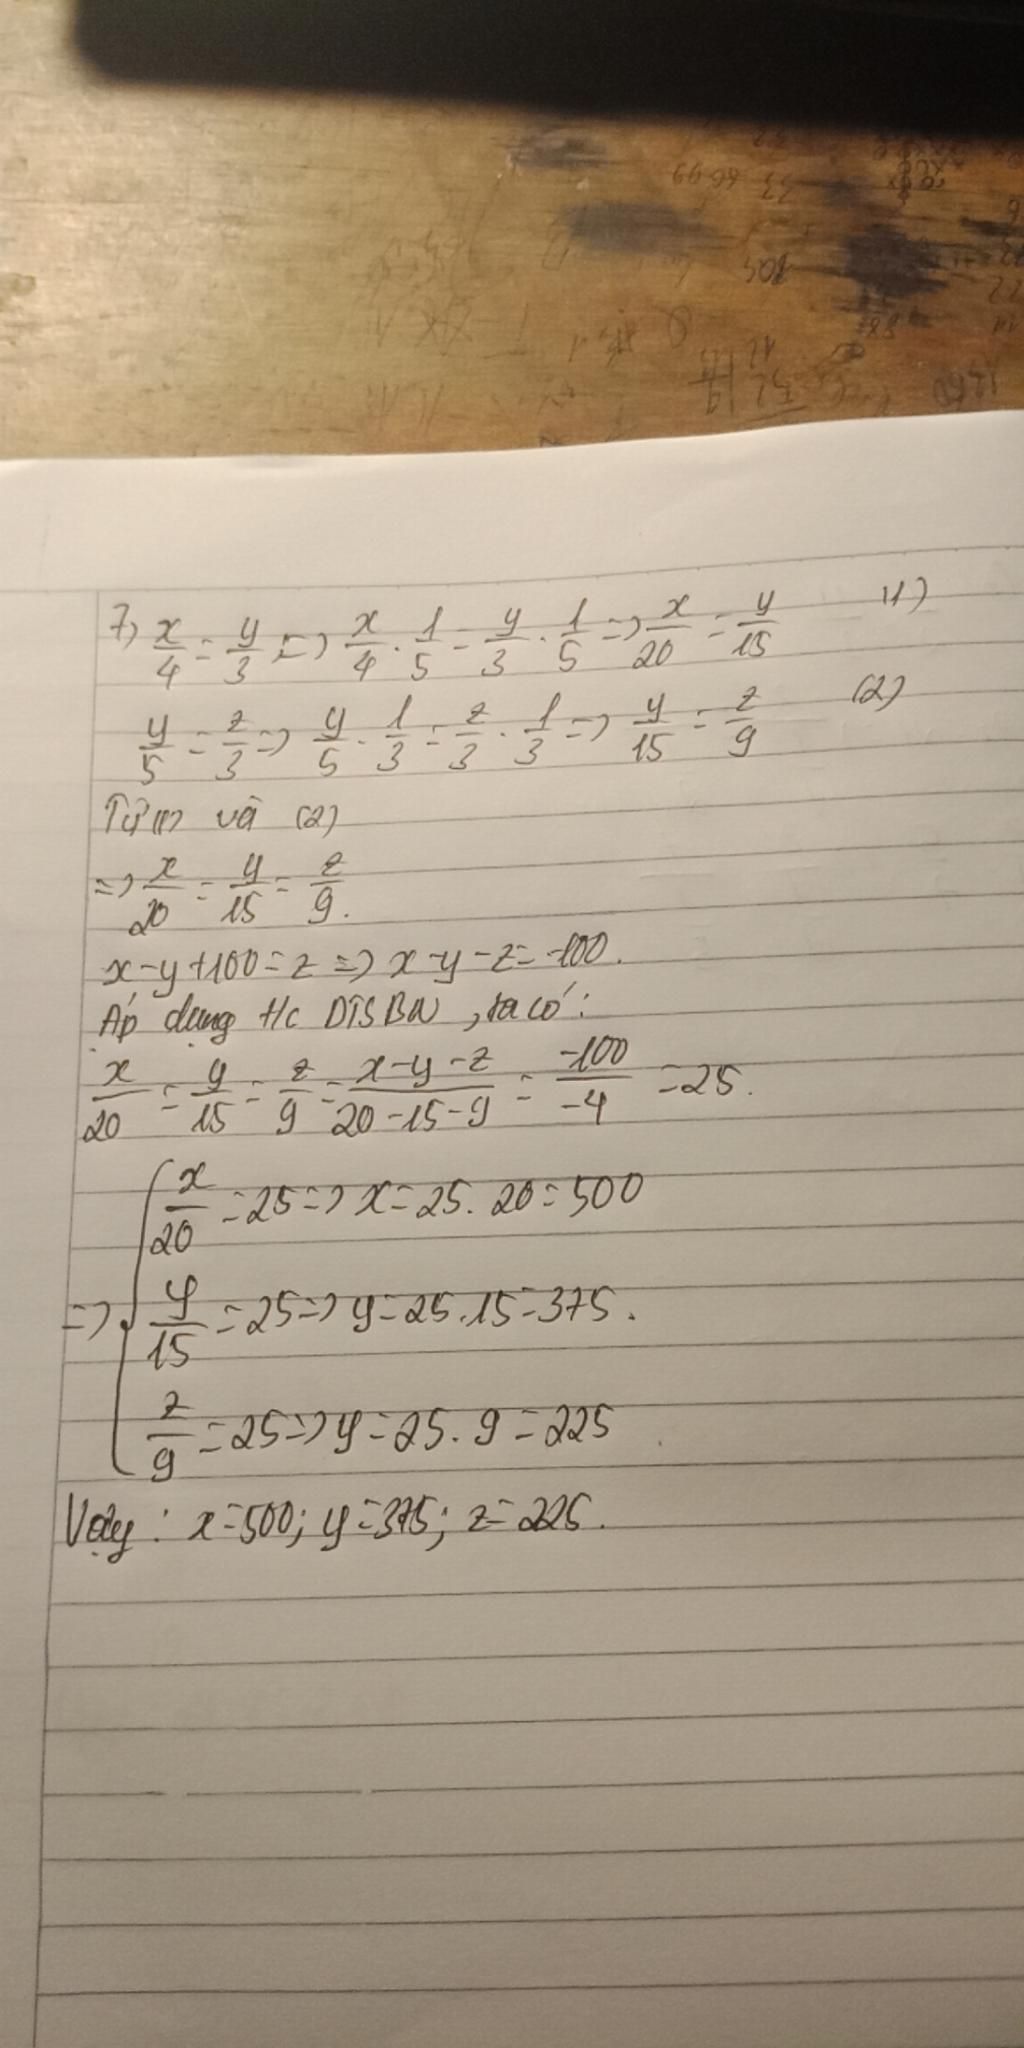 7) x/4 = y/3 => x/4 . 1/5 = y/3 . 1/5 => x/20 = y/15 (1)
y/5 = z/3 => y/5 . 1/3 = z/3 . 1/3 => y/15 = z/9 (2)
Từ (1) và (2)
=> x/20 = y/15 = z/9.
x-y+100=z => x-y-z=-100.
Áp dụng t/c DTSBN, ta có:
x/20 = y/15 = z/9 = x-y-z/20-15-9 = -100/-4 = 25.
x/20 = 25 => x = 25. 20 = 500
=> y/15 = 25 => y = 25.15 = 375.
z/9 = 25 => y = 25. 9 = 225
Vậy: x=500; y=375; z=225.